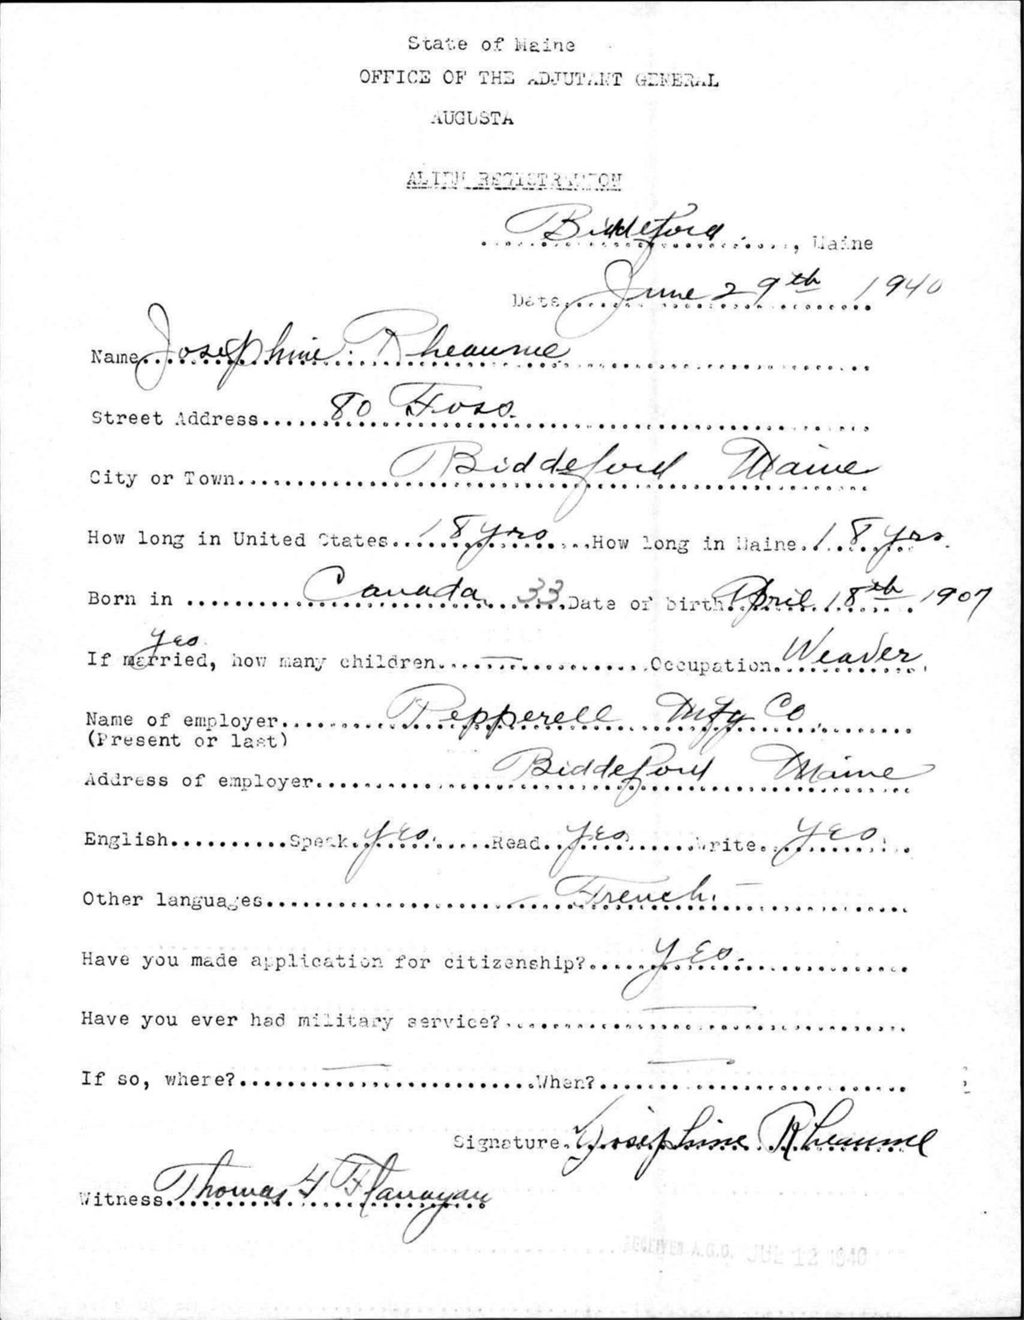 State of Maine
OFFICE OF THE ADJUTANT GENERAL
AUGUSTA
ALIEN REGISTRATION
Biddeford, Maine
Date June 29th 1940
Name Josephine Rheaume
Street Address 80 Foss
City or Town Biddeford Maine
How long in United States 18 yrs How long in Maine 18 yrs.
Born in Canada 33 Date of birth April 18th 1907
yes
If married, how many children — Occupation Weaver
Name of employer Pepperell Mfg Co.
(Present or last)
Address of employer Biddeford Maine
English Speak yes. Read yes Write yes
Other languages French
Have you made application for citizenship? yes.
Have you ever had military service? —
If so, where? — When? —
Signature Josephine Rheaume
Witness Thomas F Flanagan
RECEIVED A.G.O. JUL 12 1940